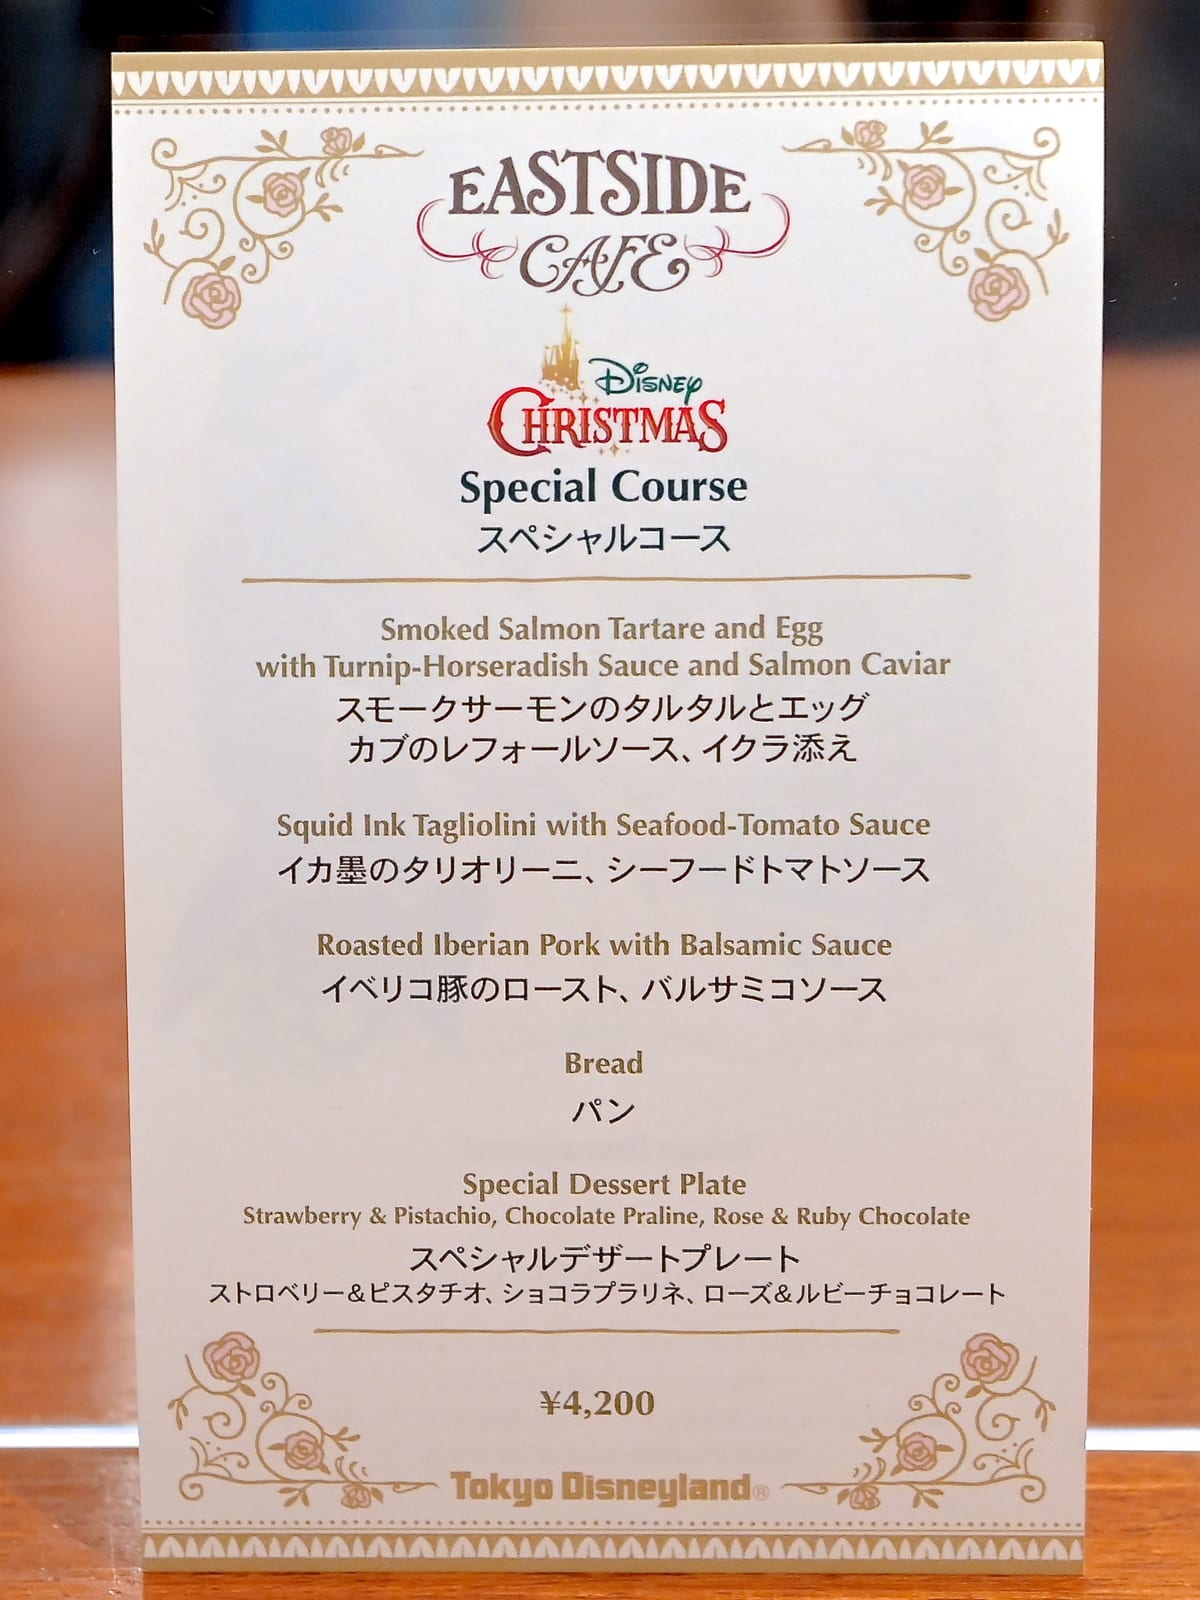 EASTSIDE
CAFE
Disney
CHRISTMAS
Special Course
スペシャルコース
Smoked Salmon Tartare and Egg
with Turnip-Horseradish Sauce and Salmon Caviar
スモークサーモンのタルタルとエッグ
カブのレフォールソース、イクラ添え
Squid Ink Tagliolini with Seafood-Tomato Sauce
イカ墨のタリオリーニ、シーフードトマトソース
Roasted Iberian Pork with Balsamic Sauce
イベリコ豚のロースト、バルサミコソース
Bread
パン
Special Dessert Plate
Strawberry & Pistachio, Chocolate Praline, Rose & Ruby Chocolate
スペシャルデザートプレート
ストロベリー&ピスタチオ、ショコラプラリネ、ローズ&ルビーチョコレート
¥4,200
Tokyo Disneyland®